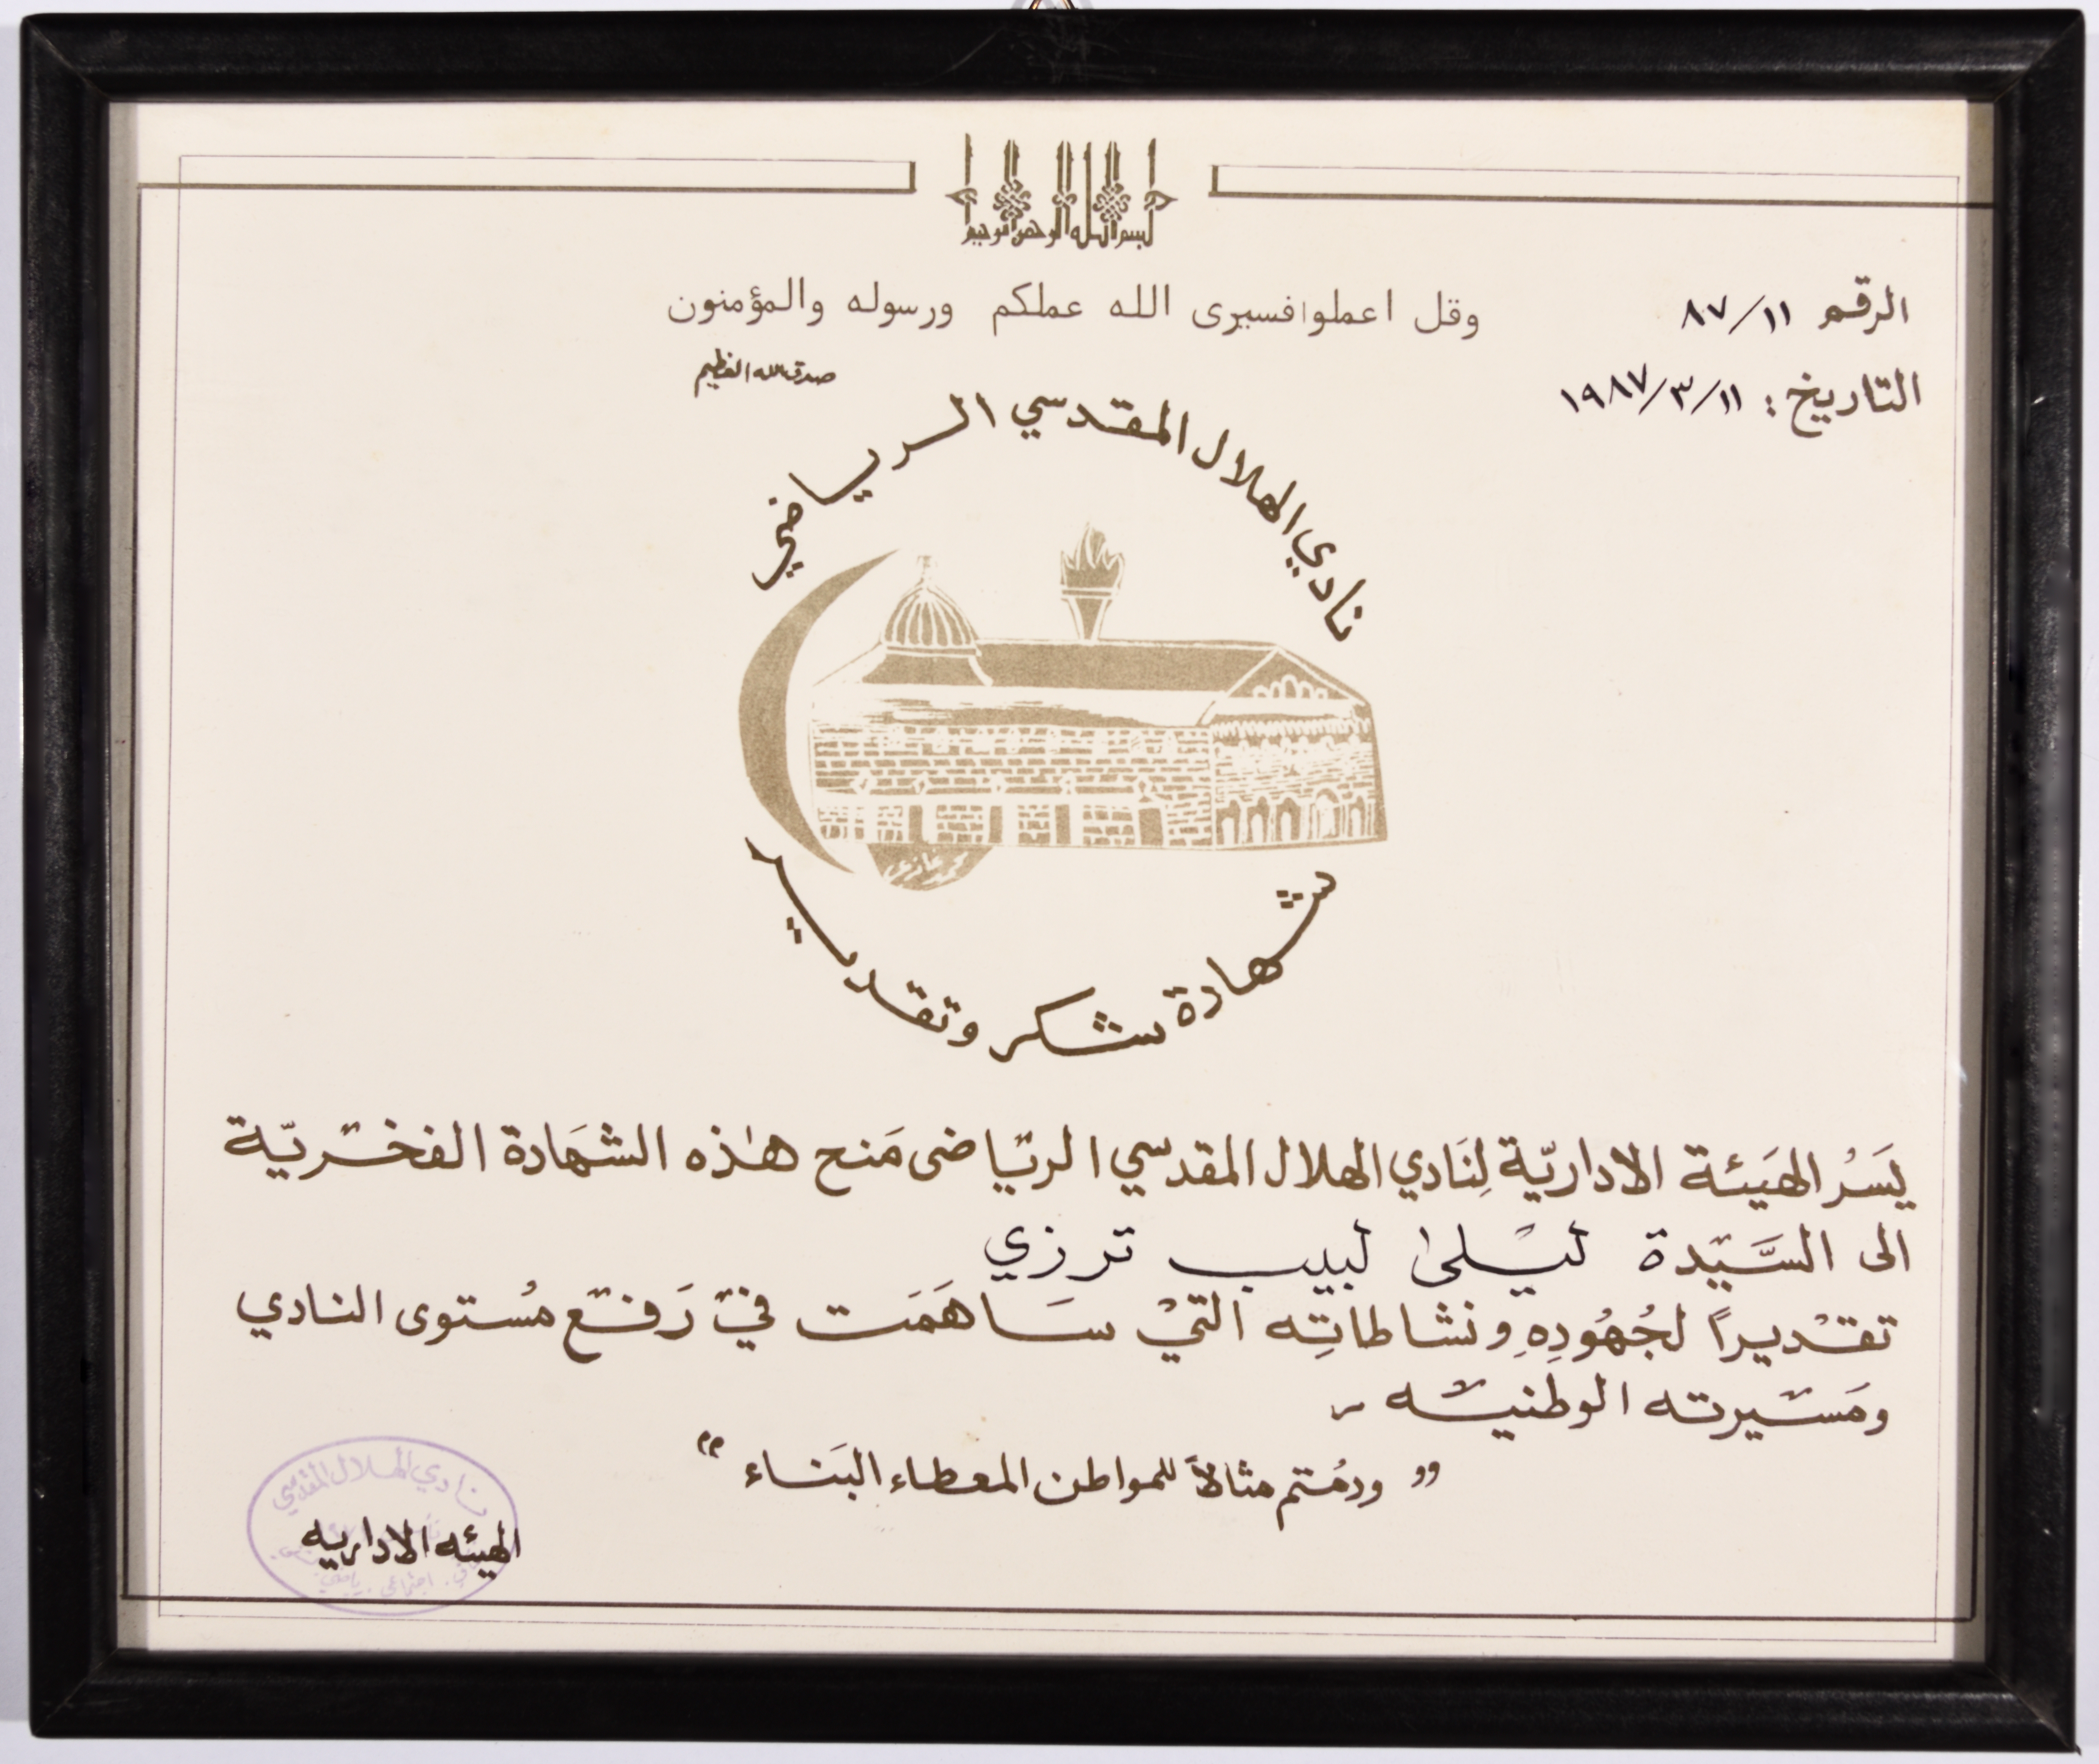 بسم الله الرحمن الرحيم
وقل اعملوا فسيرى الله عملكم ورسوله والمؤمنون
صدق الله العظيم
الرقم ٨٧/١١
التاريخ : ١٩٨٧/٣/١١
نادي الهلال المقدسي الرياضي
شهادة شكر وتقدير
يَسُر الهَيئة الاداريّة لِنَادي الهلال المقدسي الريّاضى مَنح هٰذه الشهَادة الفخريّة
الى السَّيّدة ليْلىٰ لبيب ترزي
تقدْيراً لجُهُودِهِ ونشاطاتِه التيْ سَاهَمَت في رَفع مُستوى النادي
ومَسيرته الوطنيه
" ودمُتم مثالاً للمواطن المعطاء البَناء "
نادي الهلال المقدسي
الهيئه الاداريه
اجتماعي